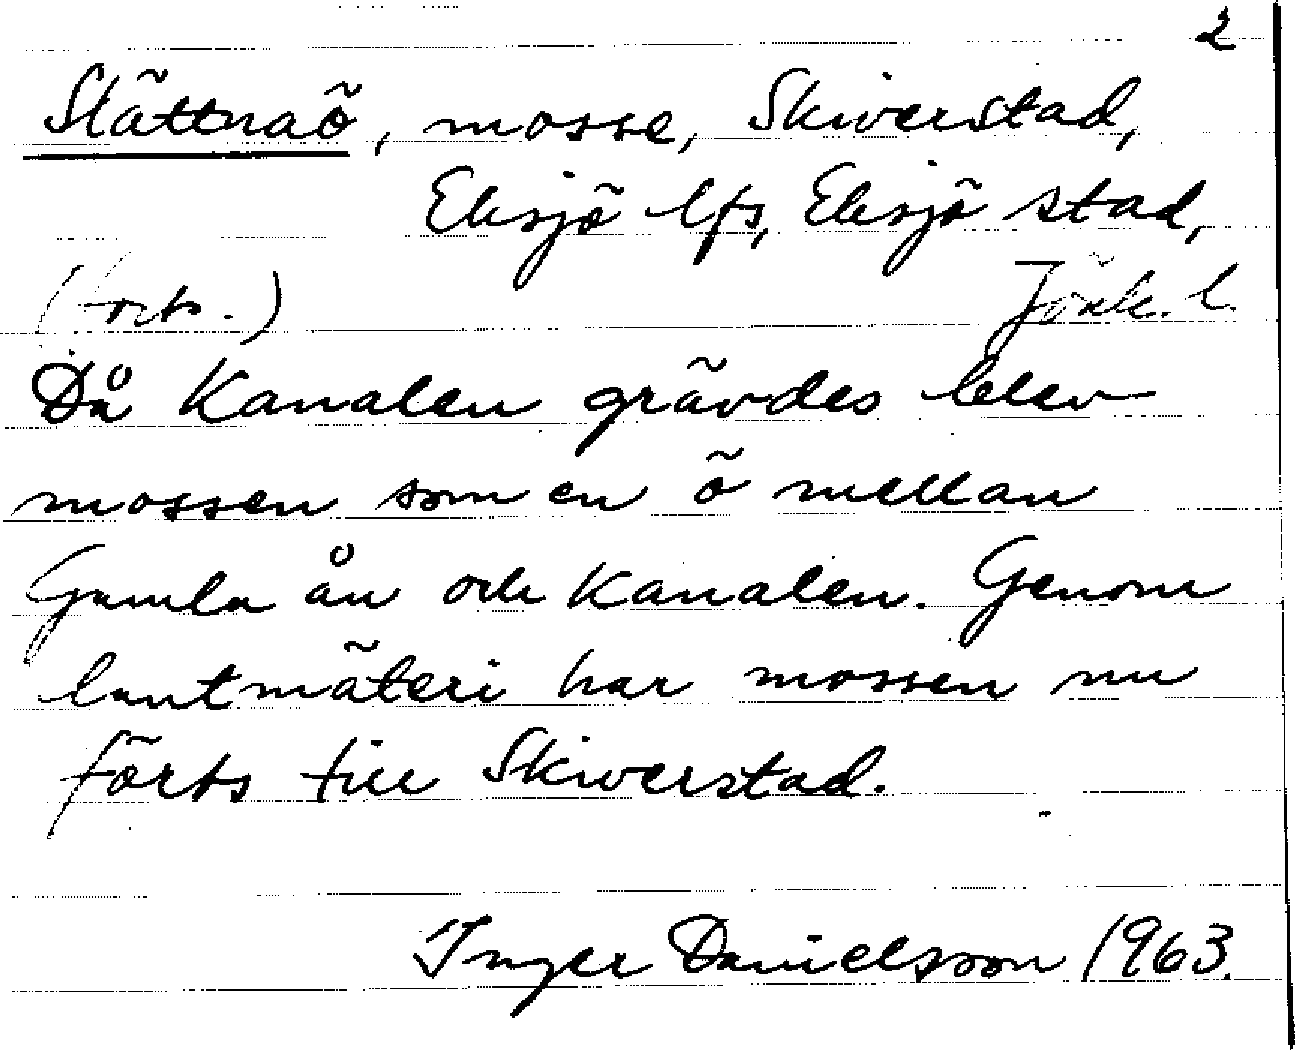 2
Slättnaö, mosse, Skiverstad,
Eksjö lfs, Eksjö stad,
(forts.) Jönk. l.
Då Kanalen grävdes blev
mossen som en ö mellan
Gamla ån och Kanalen. Genom
lantmäteri har mossen nu
förts till Skiverstad.
Inger Danielsson 1963.